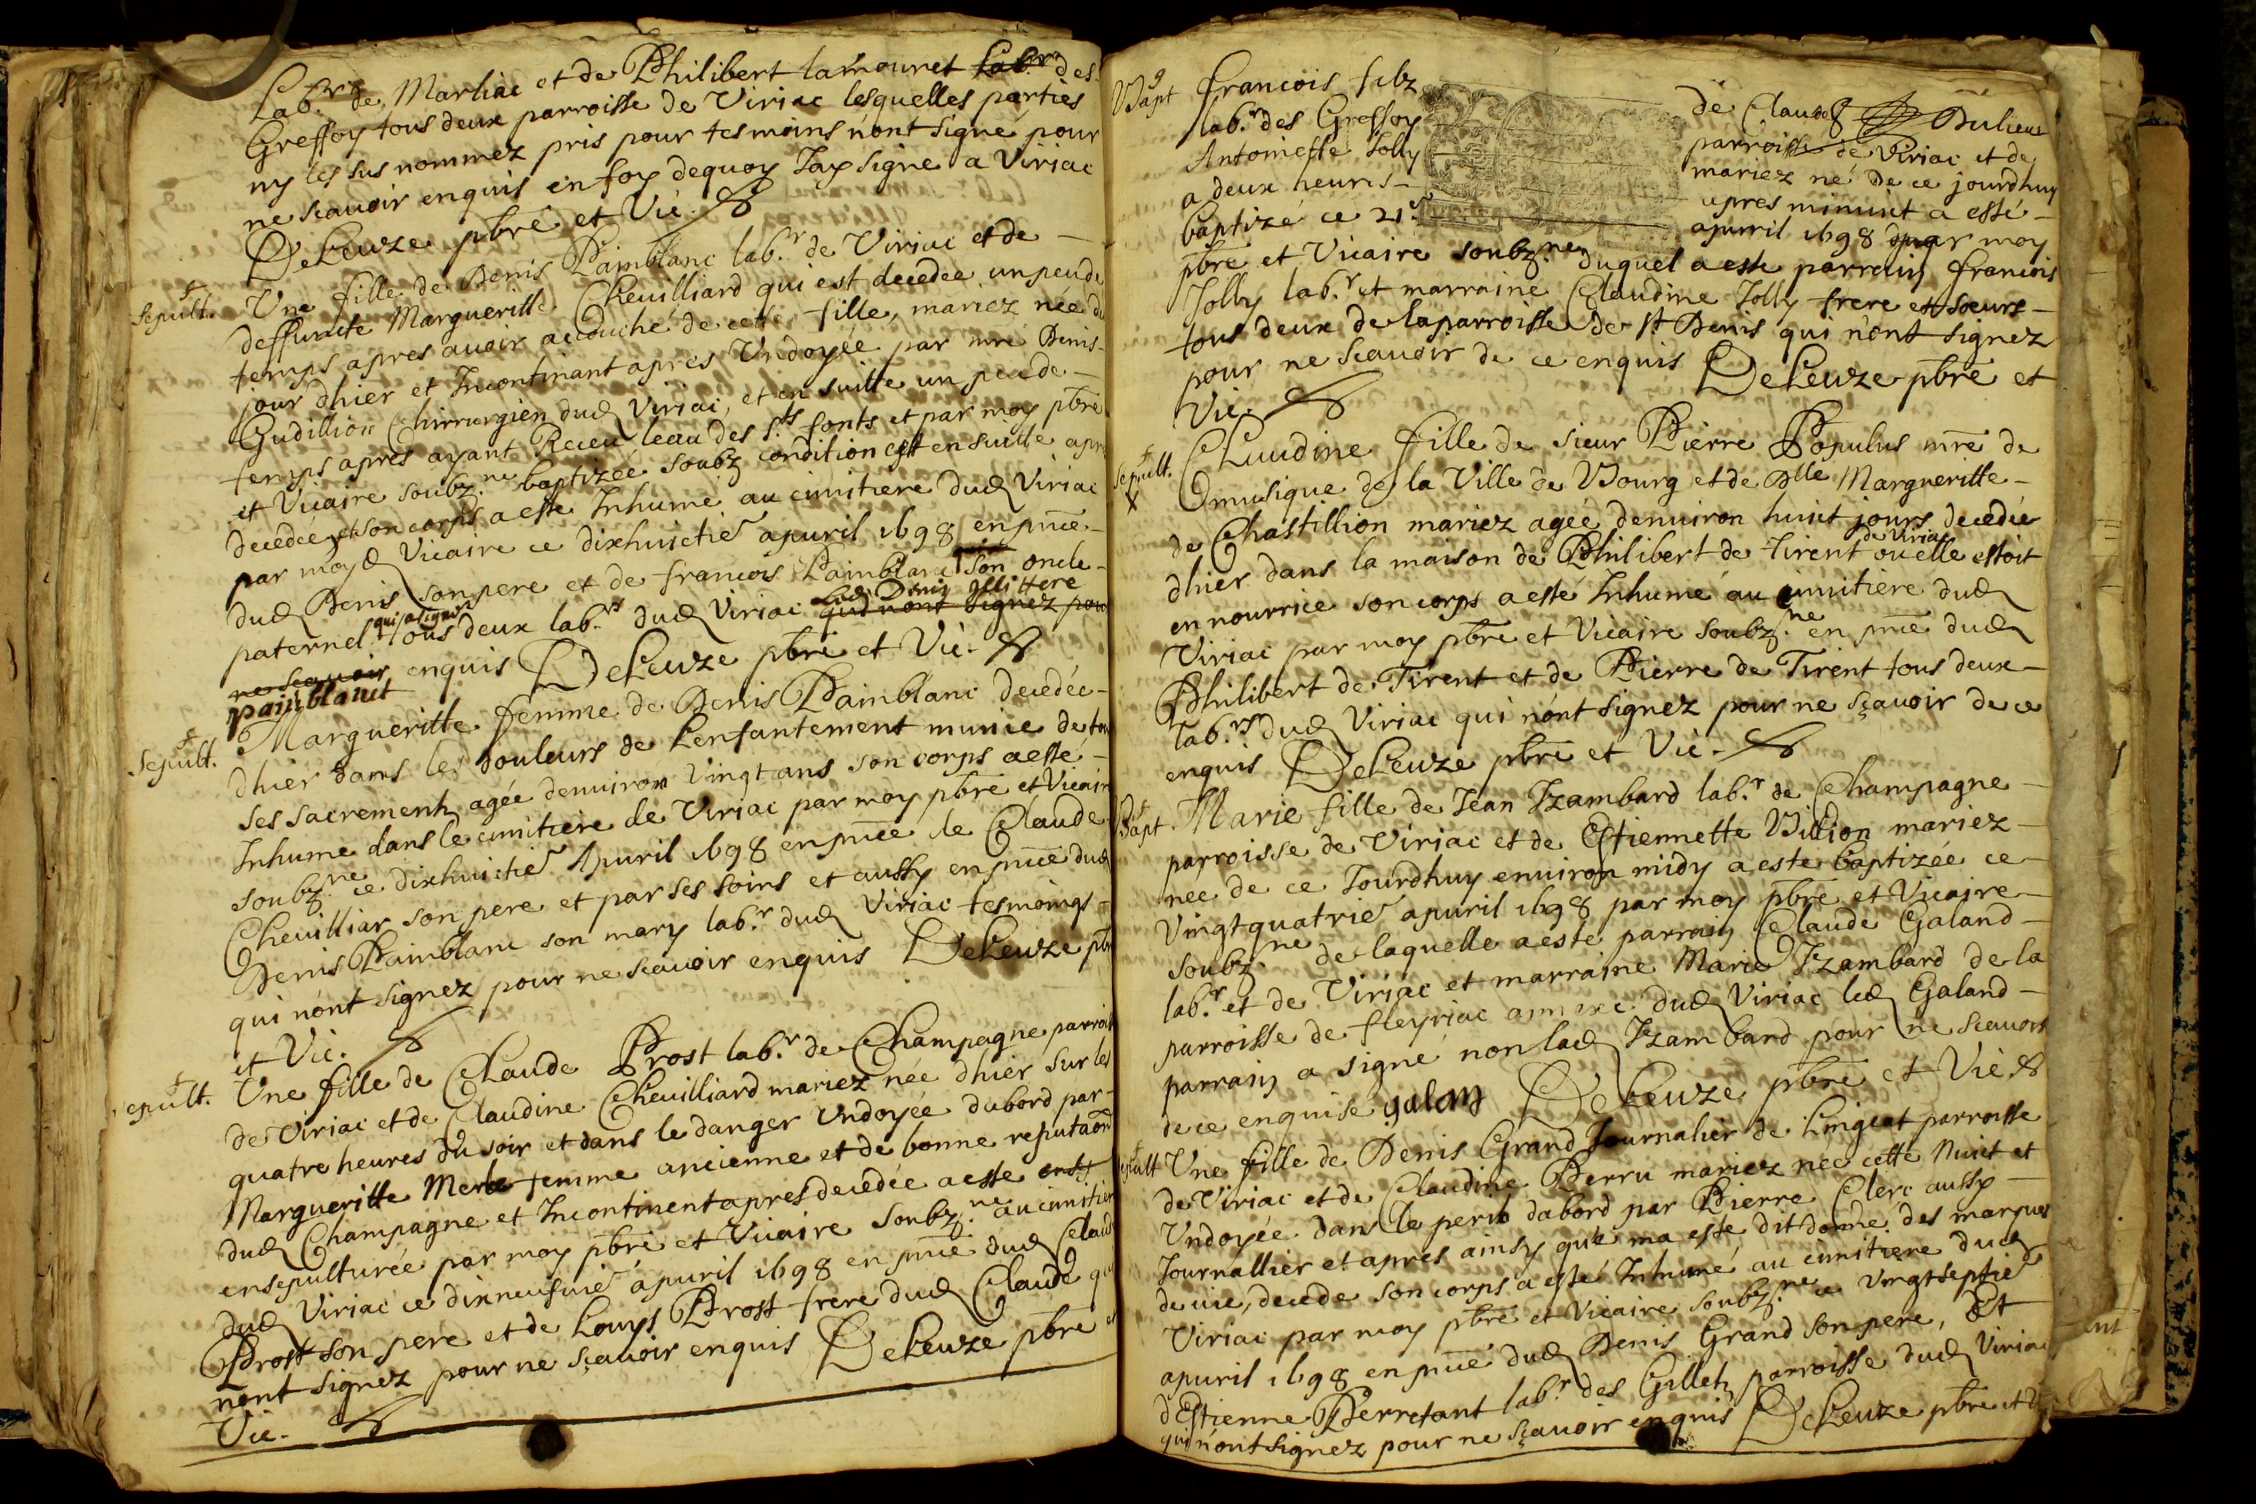 Lab.rs de Marliac et de Philibert lamouret Lab.r des
Greffoy tous deux parroisse de Viriac lesquelles parties
ny les sus nommez pris pour tesmoins n'ont signé pour
ne scauoir enquis en foy dequoy Jay signé a Viriac
DeLeuze pbre et Vic.
Sepult. Une fille de Denis Painblanc lab.r de Viriac et de
deffuncte Margueritte Cheuilliard qui est decedée un peu de
temps apres auoir accouché de cette fille, mariez née du
jour dhier et Incontinant apres Undoyée par mre Denis
Gudillion Chirurgien dud Viriac, et en suitte un peu de
temps apres ayant Receu leau des s.ts fonts et par moy pbre
et Vicaire soubz.ne baptizée soubz condition est en suitte apres
decedée et son corps a esté Inhumé au cimitiere dud Viriac
par moyd Vicaire ce dixhuictie apuril 1698 en pnce
dud Denis son pere et de francois Painblanc son oncle
paternel qui a signé tous deux lab.rs dud Viriac Led Denis Illittere qui n'ont signez pour
ne scauoir enquis DeLeuze pbre et Vic.
painblanct
Sepult. Margueritte femme de Denis Painblanc decedée
dhier dans les douleurs de Lenfantement munie de tou
ses sacrements agée denuiron Vingt ans son corps a esté
Inhumé dans le cimitiere de Viriac par moy pbre et Vicair
soubz.ne ce dixhuictie Apuril 1698 en pnce de Claude
Cheuilliar son pere et par ses soins et aussy en pnce dud
Denis Painblanc son mary lab.r dud Viriac tesmoings
qui n'ont signez pour ne scauoir enquis DeLeuze pbr
et Vic.
sepult. Une fille de Claude Prost lab.r de Champagne parroi
de Viriac et de Claudine Cheuilliard mariez née dhier sur les
quatre heures du soir et dans le danger Undoyée dabord par
Margueritte Merle femme ancienne et de bonne reputaon
dud Champagne et Incontinent apres decedée a esté
ensepulturée par moy pbre et Vicaire soubz.ne au cimitier
dud Viriac ce dixneufuie apuril 1698 en pnce dud Claud
Prost son pere et de Louys Prost frere dud Claude qu
nont signez pour ne sçauoir enquis DeLeuze pbre et
Vic.
Bapt francois filz de Claude Dulieu
lab.r des Greffoy parroisse de Viriac et de
Antoinette Jolly mariez né de ce jourdhuy
a deux heures apres minuit a esté
baptizé ce 21e apuril 1698 par moy
pbre et Vicaire soubz.ne duquel a esté parrain francois
Jolly lab.r et marraine Claudine Jolly frere et soeurs
tous deux de la parroisse de St Denis qui n'ont signez
pour ne scauoir de ce enquis DeLeuze pbre et
Vic.
Sepult. Claudine fille de sieur Pierre Populus mre de
musique de la Ville de Bourg et de Dlle Margueritte
de Chastillion mariez agée denuiron huict jours decedée
dhier dans la maison de Philibert de Tirent de Viriac ou elle estoit
en nourrice son corps a esté Inhumé au cimitière dud
Viriac par moy pbre et Vicaire soubz.ne en pnce dud
Philibert de Tirent et de Pierre de Tirent tous deux
lab.rs dud Viriac qui n'ont signez pour ne sçauoir de ce
enquis DeLeuze pbre et Vic.
Bapt Marie fille de Jean Jzambard lab.r de Champagne
parroisse de Viriac et de Estiennette Villion mariez
née de ce Jourdhuy enuiron midy a esté baptizée ce
Vingtquatrie apuril 1698 par moy pbre et Vicaire
soubz.ne de laquelle a esté parrain Claude Galand
lab.r et de Viriac et marraine Marie Jzambard de la
parroisse de fleyriac annexe dud Viriac led Galand
parrain a signé non lad Jzambard pour ne scauoir
de ce enquise galan DeLeuze pbre et Vic.
sepult Une fille de Denis Grand Journalier de Lingeat parroisse
de Viriac et de Claudine Perru mariez née cette Nuict et
Undoyée dans le peril dabord par Pierre Clerc aussy
Journallier et apres ainsy que ma esté dit donné des marques
de vie, decede son corps a esté Inhumé au cimitiere dud
Viriac par moy pbre et Vicaire soubz.ne ce Vingtseptie
apuril 1698 en pnce dud Denis Grand son pere, Et
d'Estienne Perretant lab.r des Gilletz parroisse dud Viriac
qui n'ont signez pour ne sçauoir enquis DeLeuze pbre et